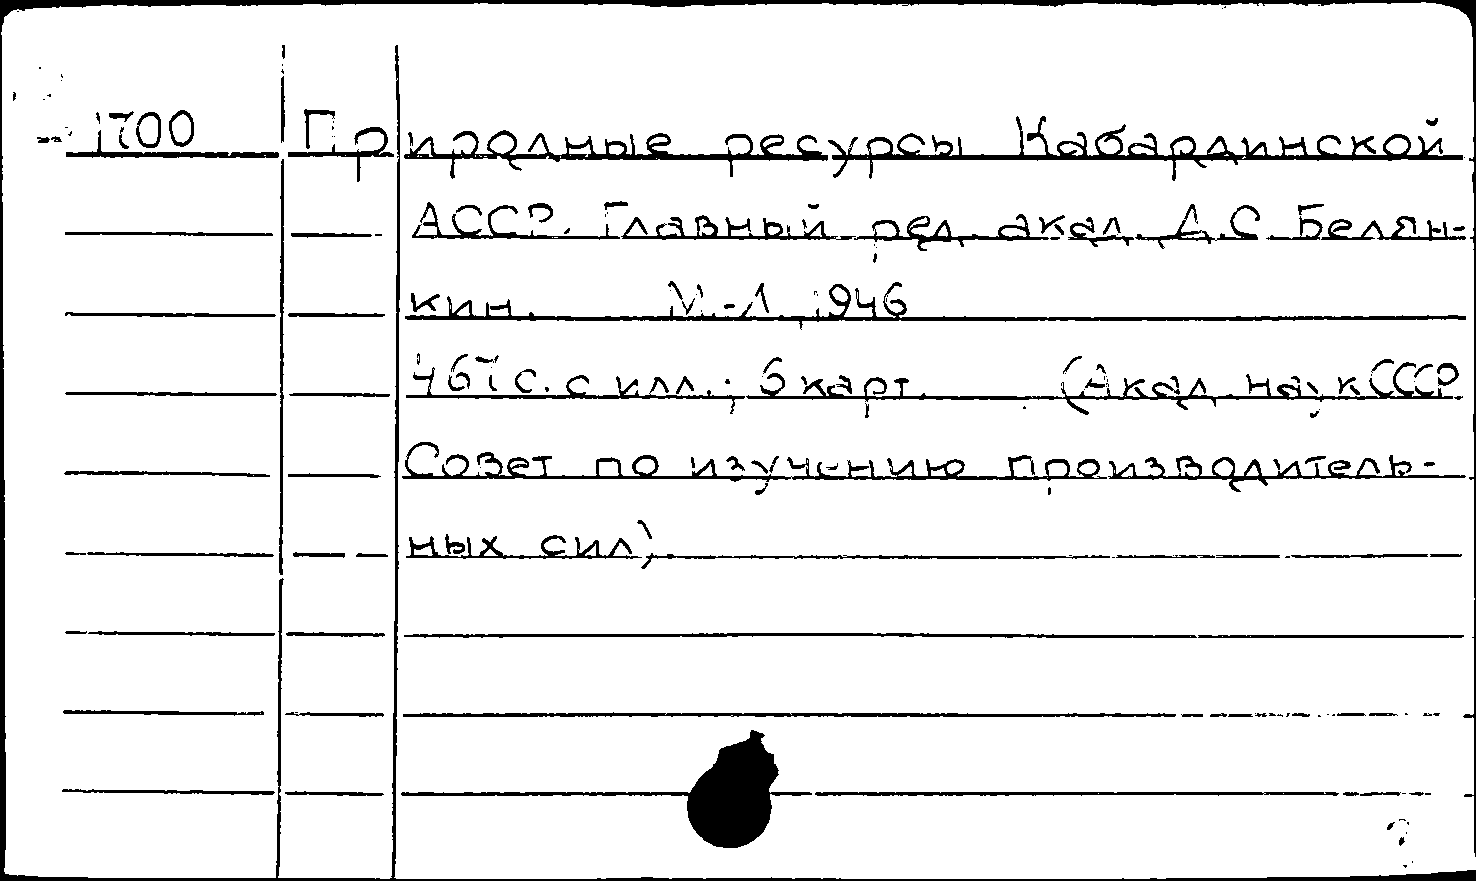 1700 Природные ресурсы Кабардинской
АССР. Главный ред. акад. Д.С. Белян-
кин. М.-Л., 1946
467 с. с илл.; 6 карт. (Акад. наук СССР
Совет по изучению производитель-
ных сил).